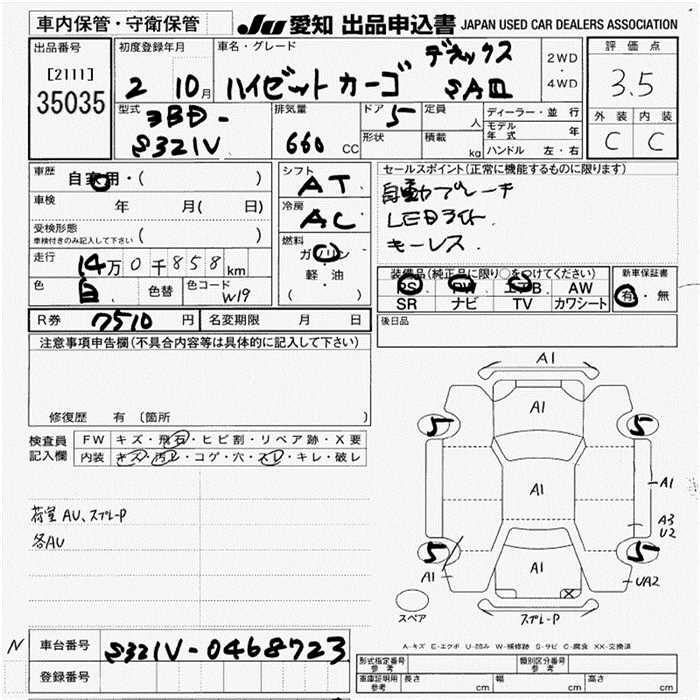 車内保管・守衛保管
JU 愛知 出品申込書 JAPAN USED CAR DEALERS ASSOCIATION
出品番号
[2111]
35035
初度登録年月
2 10月
車名・グレード
デラックス
ハイゼットカーゴ SAⅢ
2WD
・
4WD
評価点
3.5
外装 内装
C C
型式
3BD-
S321V
排気量
660 CC
ドア 5
形状
定員 人
積載 kg
ディーラー・並行
モデル年式 年
ハンドル 左・右
車歴
自家用・( )
車検 年 月( 日)
受検形態
車検付きのみ記入して下さい ( )
走行 14万0千858km
色 白 色替 色コード W19
シフト AT
冷房 AC
燃料
ガソリン
軽・油
( )
セールスポイント(正常に機能するものに限ります)
自動ブレーキ
LEDライト.
キーレス.
装備品(純正品に限り○をつけてください)
PS PW エアB AW
SR ナビ TV カワシート
新車保証書
有・無
後日品
R券 7510円 名変期限 月 日
注意事項申告欄(不具合内容等は具体的に記入して下さい)
修復歴 有 (箇所
検査員記入欄
FW キズ・飛石・ヒビ割・リペア跡・X要
内装 キズ・汚レ・コゲ・穴・スレ・キレ・破レ
荷室AU、スプレーP
各AU
A1
A1
5 5
A1
A1
A3
U2
5 5
A1
A1
X
UA2
スペア
スプレーP
A-キズ E-エクボ U-凹み W-補修跡 S-サビ C-腐食 XX-交換済
N
車台番号 S321V-0468723
登録番号
形式指定番号 参考
類別区分番号 参考
車庫証明用 参考 長さ cm 幅 cm 高さ cm